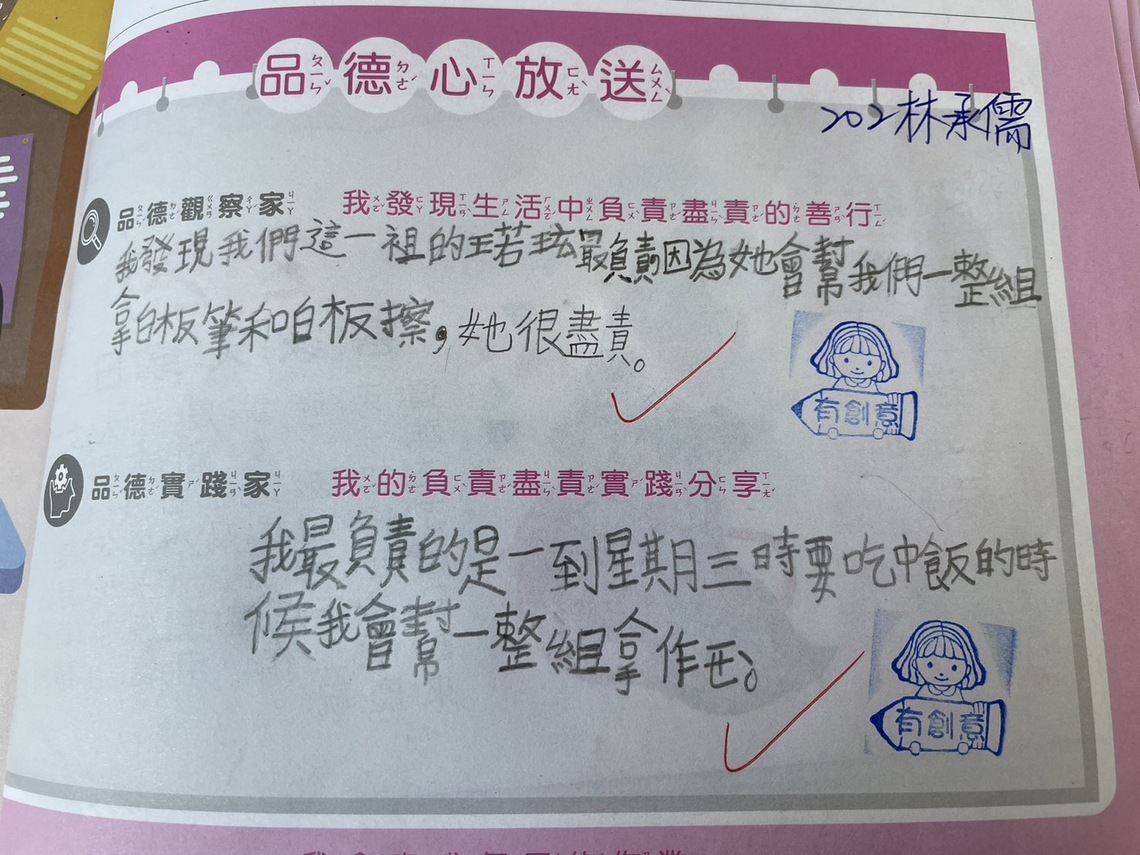 品德心放送
202林承儒
品德觀察家 我發現生活中負責盡責的善行
我發現我們這一祖的王若玹最負責因為她會幫我們一整組
拿白板筆和白板擦，她很盡責。
有創意
品德實踐家 我的負責盡責實踐分享
我最負責的是一到星期三時要吃中飯的時
候我會幫一整組拿作
有創意